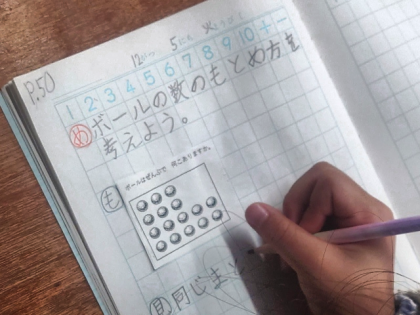 P.50
12がつ 5にち
1 2 3 4 5 6 7 8 9 10 + −
め ボールの数のもとめ方を
考えよう。
も
ボールはぜんぶで 何こありますか。
見 同じまと